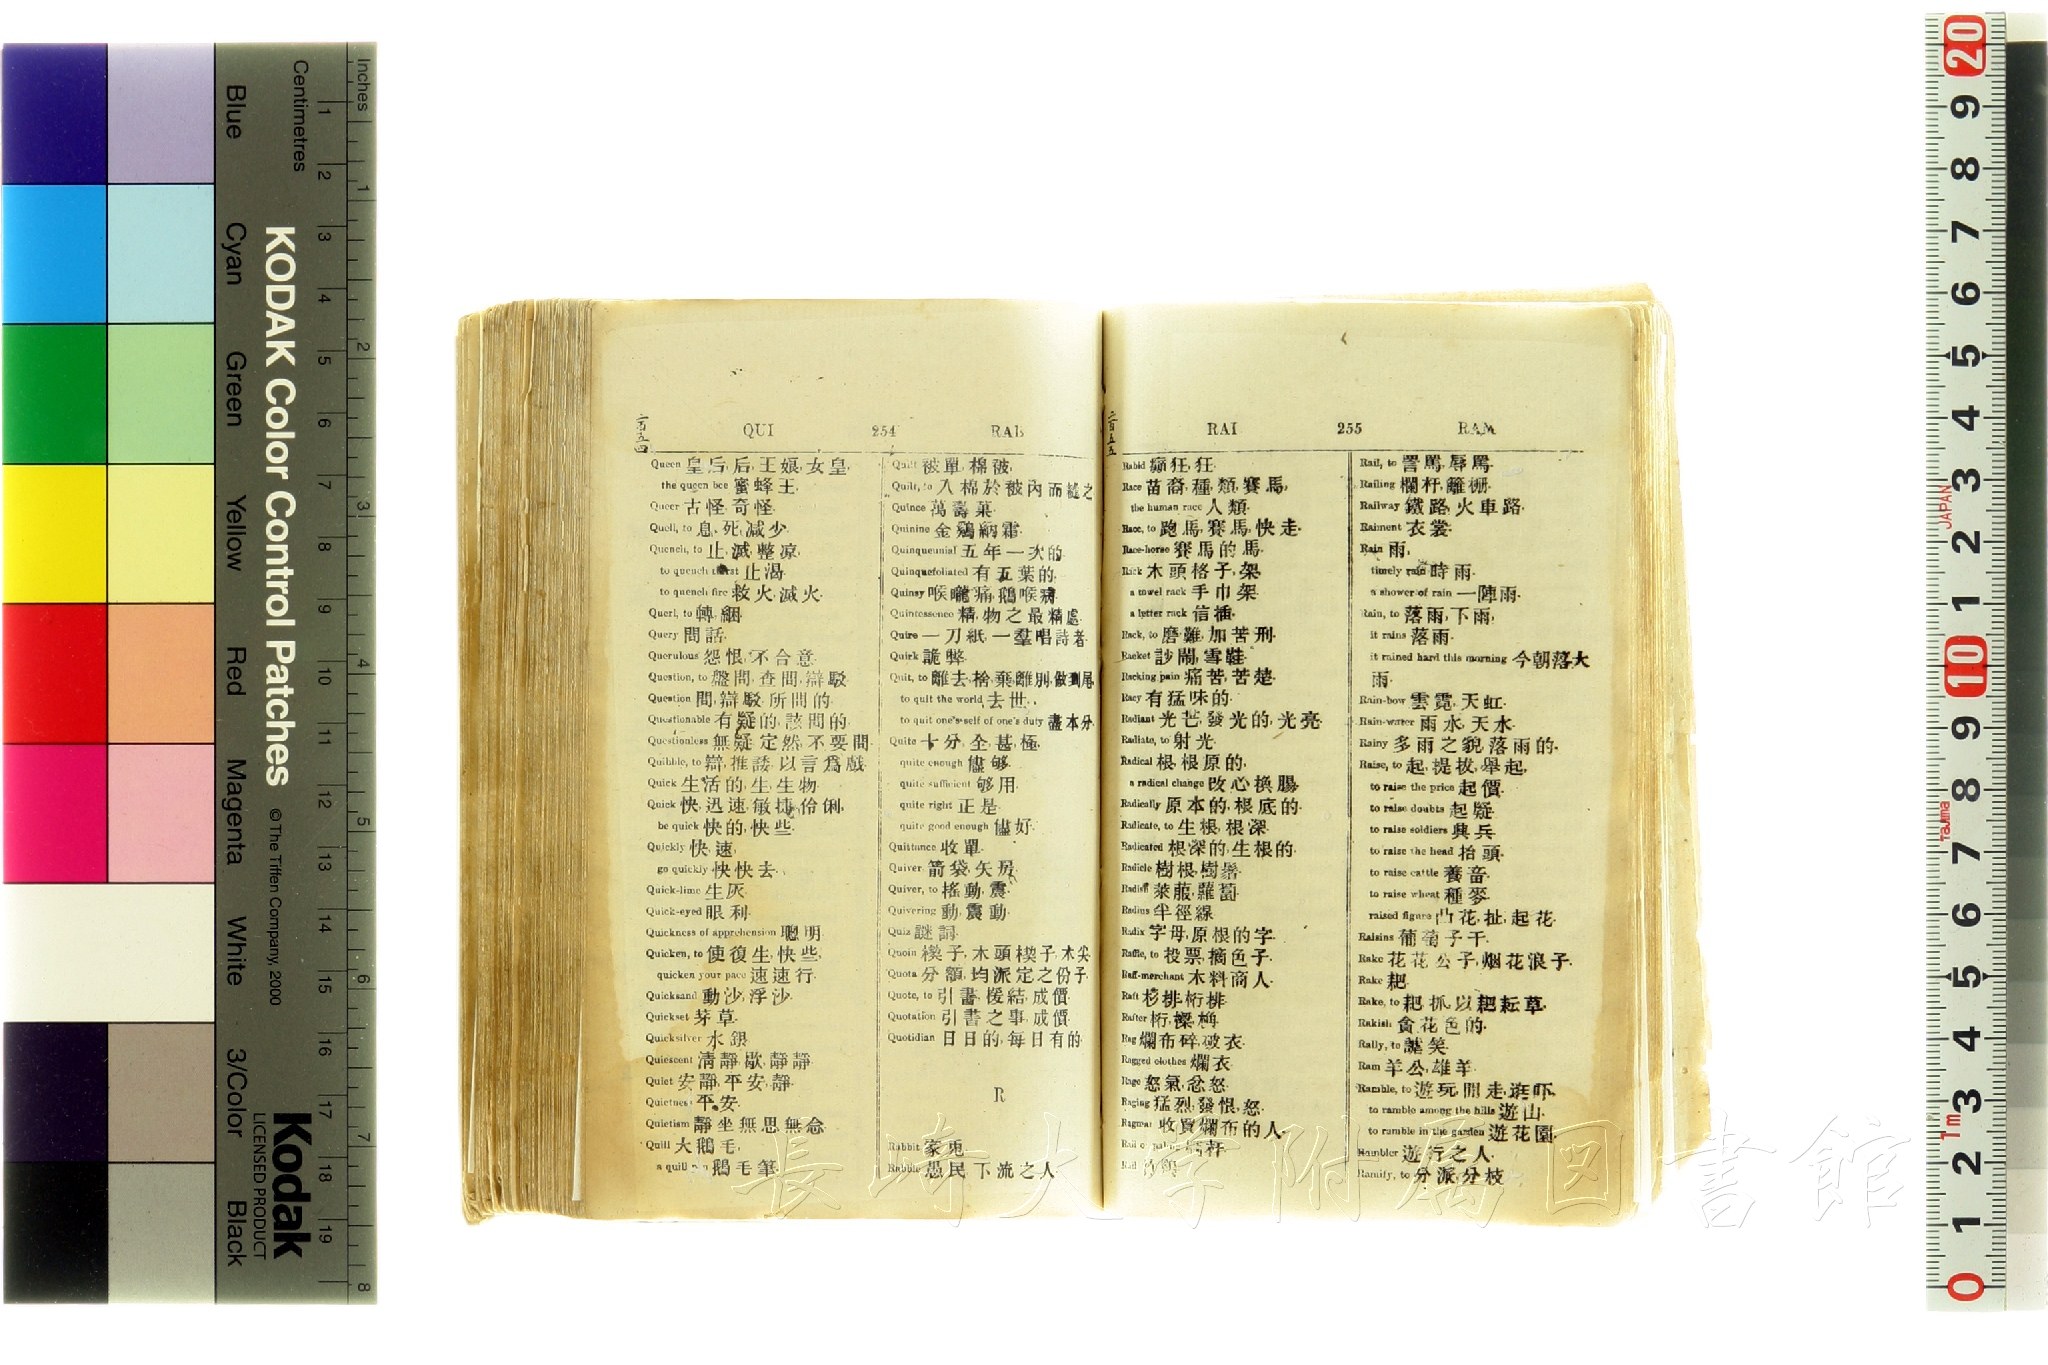 Inches
Centimetres
1 2 3 4 5 6 7 8
1 2 3 4 5 6 7 8 9 10 11 12 13 14 15 16 17 18 19
Blue
Cyan
Green
Yellow
Red
Magenta
White
3/Color
Black
KODAK Color Control Patches
© The Tiffen Company, 2000
Kodak
LICENSED PRODUCT
二百五四
QUI 254 RAB
Queen 皇后, 后, 王娘, 女皇.
the queen bee 蜜蜂王.
Queer 古怪, 奇怪.
Quell, to 息, 死, 減少.
Quench, to 止, 滅, 整凉.
to quench thirst 止渴.
to quench fire 救火, 滅火.
Querl, to 轉, 綑.
Query 問話.
Querulous 怨恨, 不合意.
Question, to 盤問, 查問, 辯駁.
Question 問, 辯駁, 所問的.
Questionable 有疑的, 該問的.
Questionless 無疑, 定然, 不要問.
Quibble, to 辯, 推諉, 以言爲戲.
Quick 生活的, 生, 生物.
Quick 快, 迅速, 敏捷, 伶俐.
be quick 快的, 快些.
Quickly 快, 速.
go quickly 快快去.
Quick-lime 生灰.
Quick-eyed 眼利.
Quickness of apprehension 聰明.
Quicken, to 使復生, 快些.
quicken your pace 速速行.
Quicksand 動沙, 浮沙.
Quickset 茅草.
Quicksilver 水銀.
Quiescent 淸靜, 歇, 靜靜.
Quiet 安靜, 平安, 靜.
Quietness 平安.
Quietism 靜坐無思無念.
Quill 大鵝毛.
a quill pen 鵝毛筆.
Quilt 被單, 棉被.
Quilt, to 入棉於被內而縫之.
Quince 萬壽菓.
Quinine 金鷄納霜.
Quinquennial 五年一次的.
Quinquefoliated 有五葉的.
Quinsy 喉嚨痛, 鵝喉痛.
Quintessence 精, 物之最精處.
Quire 一刀紙, 一羣唱詩者.
Quirk 詭弊.
Quit, to 離去, 捨棄, 離別, 做到尾.
to quit the world 去世.
to quit one's-self of one's duty 盡本分.
Quite 十分, 全, 甚, 極.
quite enough 儘够.
quite sufficient 够用.
quite right 正是.
quite good enough 儘好.
Quittance 收單.
Quiver 箭袋, 矢房.
Quiver, to 搖動, 震.
Quivering 動, 震動.
Quiz 謎詞.
Quoin 楔子, 木頭楔子, 木尖.
Quota 分額, 均派定之份子.
Quote, to 引書, 援結, 成價.
Quotation 引書之事, 成價.
Quotidian 日日的, 每日有的.
R
Rabbit 家兎.
Rabble 愚民, 下流之人.
二百五五
RAI 255 RAM
Rabid 癲狂, 狂.
Race 苗裔, 種類, 賽馬.
the human race 人類.
Race, to 跑馬, 賽馬, 快走.
Race-horse 賽馬的馬.
Rack 木頭格子, 架.
a towel rack 手巾架.
a letter rack 信插.
Rack, to 磨難, 加苦刑.
Racket 訬鬧, 雪鞋.
Racking pain 痛苦, 苦楚.
Racy 有猛味的.
Radiant 光芒, 發光的, 光亮.
Radiate, to 射光.
Radical 根, 根原的.
a radical change 改心換腸.
Radically 原本的, 根底的.
Radicate, to 生根, 根深.
Radicated 根深的, 生根的.
Radicle 樹根, 樹鬚.
Radish 萊菔, 蘿蔔.
Radius 半徑線.
Radix 字母, 原根的字.
Raffle, to 投票, 擲色子.
Raff-merchant 木料商人.
Raft 杉排, 桁排.
Rafter 桁, 樑, 桷.
Rag 爛布碎, 破衣.
Ragged clothes 爛衣.
Rage 怒氣, 忿怒.
Raging 猛烈, 發恨, 怒.
Ragman 收買爛布的人.
Rail, to 詈罵, 辱罵.
Railing 欄杆, 籬栅.
Railway 鐵路, 火車路.
Raiment 衣裳.
Rain 雨.
timely rain 時雨.
a shower of rain 一陣雨.
Rain, to 落雨, 下雨.
it rains 落雨.
it rained hard this morning 今朝落大
雨.
Rain-bow 雲霓, 天虹.
Rain-water 雨水, 天水.
Rainy 多雨之貌, 落雨的.
Raise, to 起, 提拔, 舉起.
to raise the price 起價.
to raise doubts 起疑.
to raise soldiers 興兵.
to raise the head 抬頭.
to raise cattle 養畜.
to raise wheat 種麥.
raised figure 凸花, 扯, 起花.
Raisins 葡萄子干.
Rake 花花公子, 烟花浪子.
Rake 耙.
Rake, to 耙, 抓, 以耙耘草.
Rakish 貪花色的.
Rally, to 謔笑.
Ram 羊公, 雄羊.
Ramble, to 遊玩, 閒走, 逛吓.
to ramble among the hills 遊山.
to ramble in the garden 遊花園.
Rambler 遊行之人.
Ramify, to 分派, 分枝.
長崎大学附属図書館
20 9 8 7 6 5 4 3 2 1 10 9 8 7 6 5 4 3 2 1 0
JAPAN
Tajima
1m